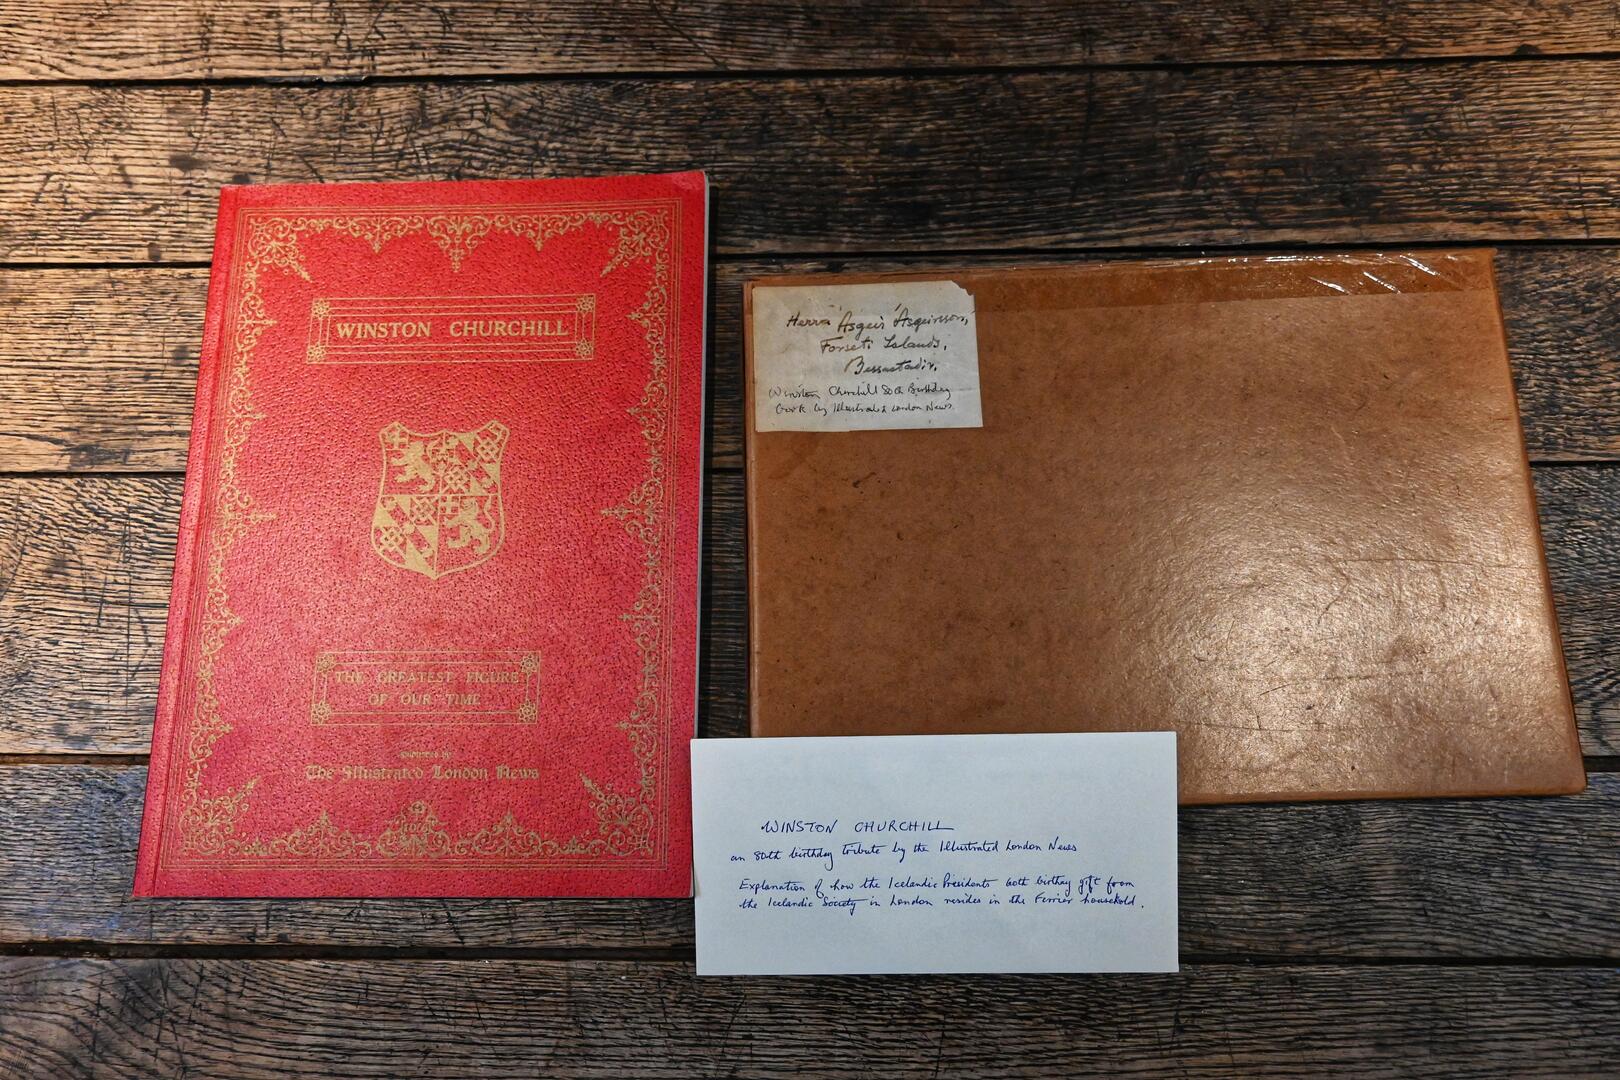 WINSTON CHURCHILL
THE GREATEST FIGURE
OF OUR TIME
The Illustrated London News
Herra Ásgeir Ásgeirsson,
Forseti Íslands,
Bessastadir.
Winston Churchill 80th Birthday
book by Illustrated London News.
WINSTON CHURCHILL
an 80th birthday tribute by the Illustrated London News
Explanation of how the Icelandic Presidents 60th birthay gift from
the Icelandic Society in London resides in the Ferrier household.